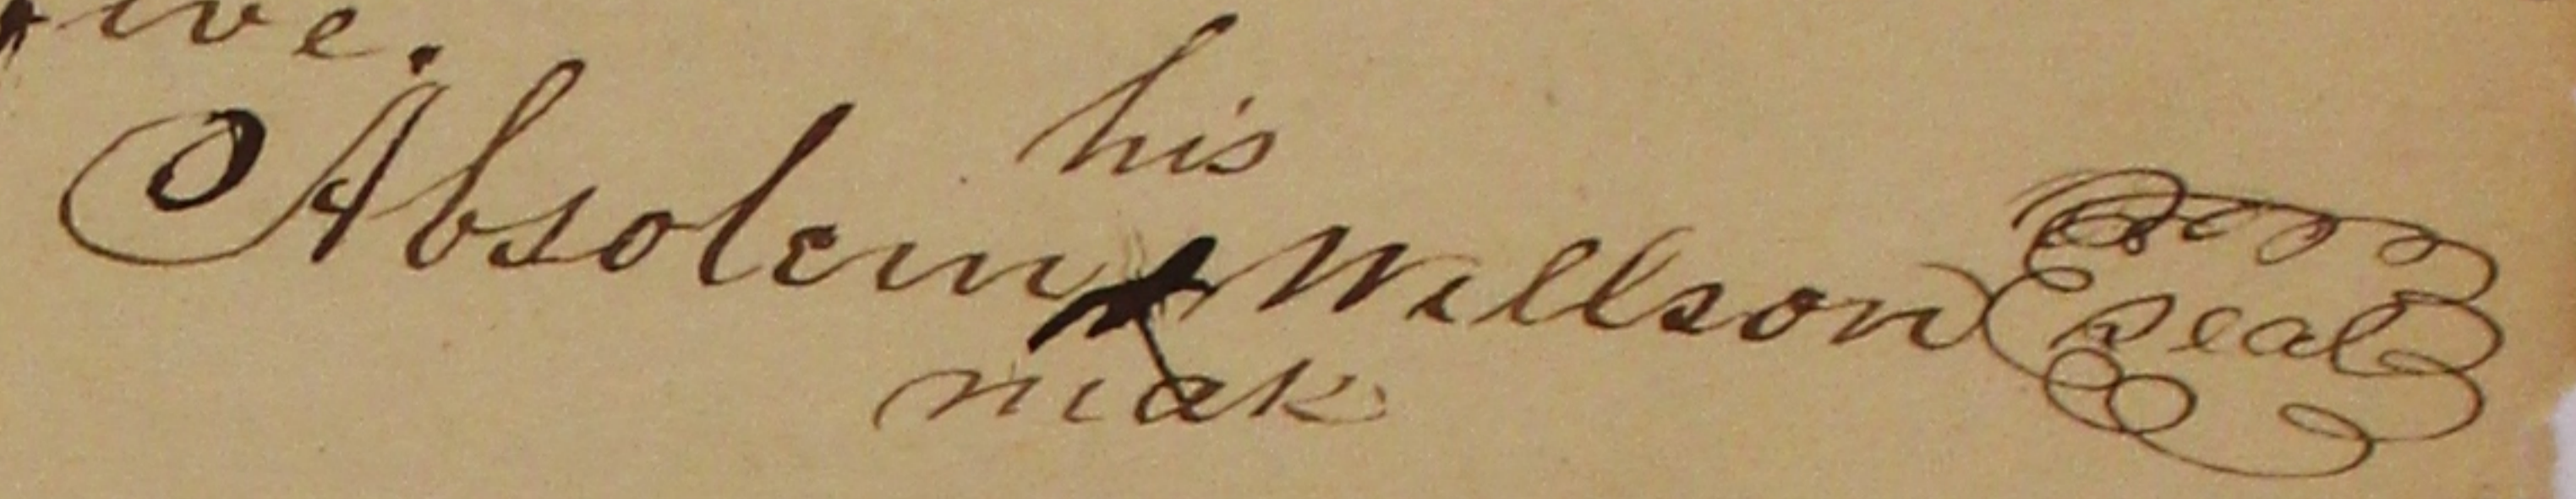 ive.
his
Absolem X Willson seal
mak